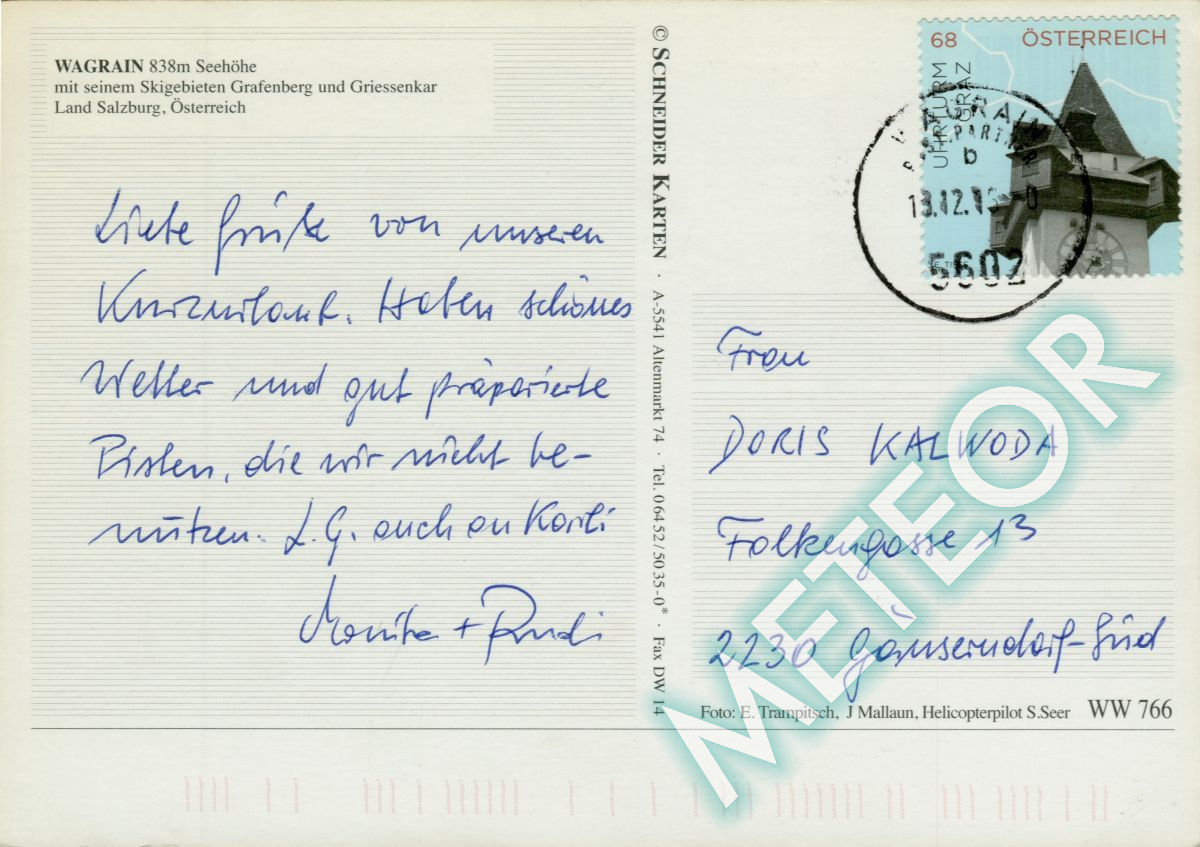 WAGRAIN 838m Seehöhe
mit seinem Skigebieten Grafenberg und Griessenkar
Land Salzburg, Österreich
Liebe Grüße von unseren
Kurzurlaub. Haben schönes
Wetter und gut präparierte
Pisten, die wir nicht be-
nützen. L.G. auch an Karli
Monika + Rudi
© SCHNEIDER KARTEN · A-5541 Altenmarkt 74 · Tel. 06452/5035-0* · Fax DW 14
68 ÖSTERREICH
UHRTURM
GRAZ
WAGRAIN
POSTPARTNER
b
13.12.
5602
Frau
DORIS KALWODA
Falkengasse 13
2230 Gänserndorf-Süd
Foto: E. Trampitsch, J Mallaun, Helicopterpilot S.Seer WW 766
METEOR